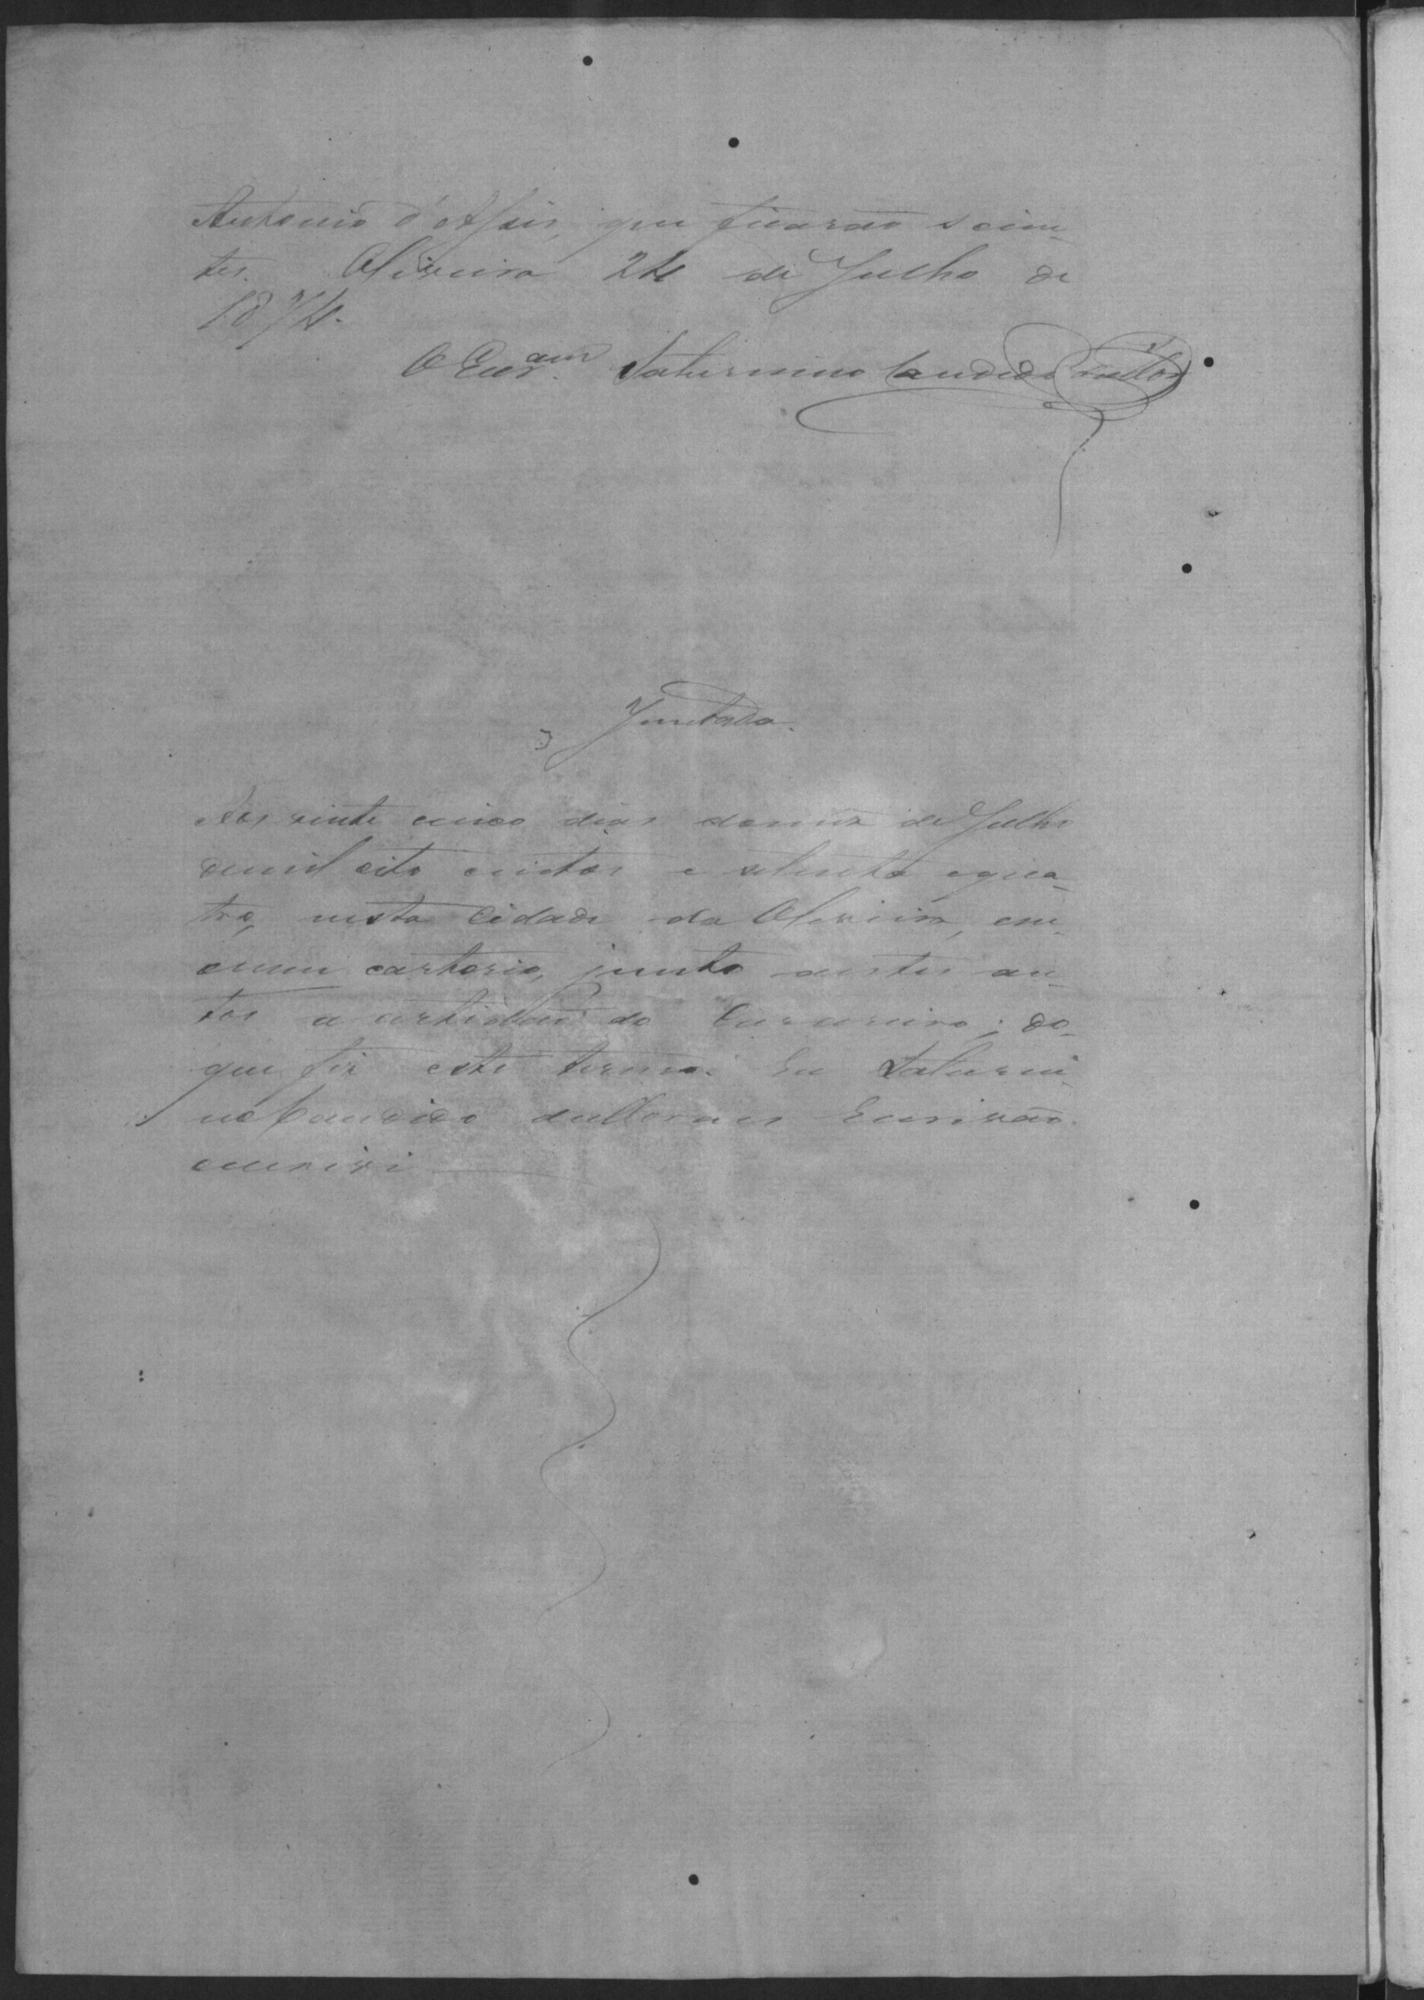 Antonio d'Assis, que ficarão scien-
tes. Oliveira 24 de Julho de
1874.
O Escr.am Saturnino Candido
Juntada.
Aos vinte cinco dias do mez de Julho
de mil oito centos e setenta e qua-
tro, nesta Cidade da Oliveira, em
meu cartorio, junto a estes au-
tos a certidão do Curador; do
que fiz este termo. Eu Saturni-
no Candido de Moraes Escrivão
escrevi